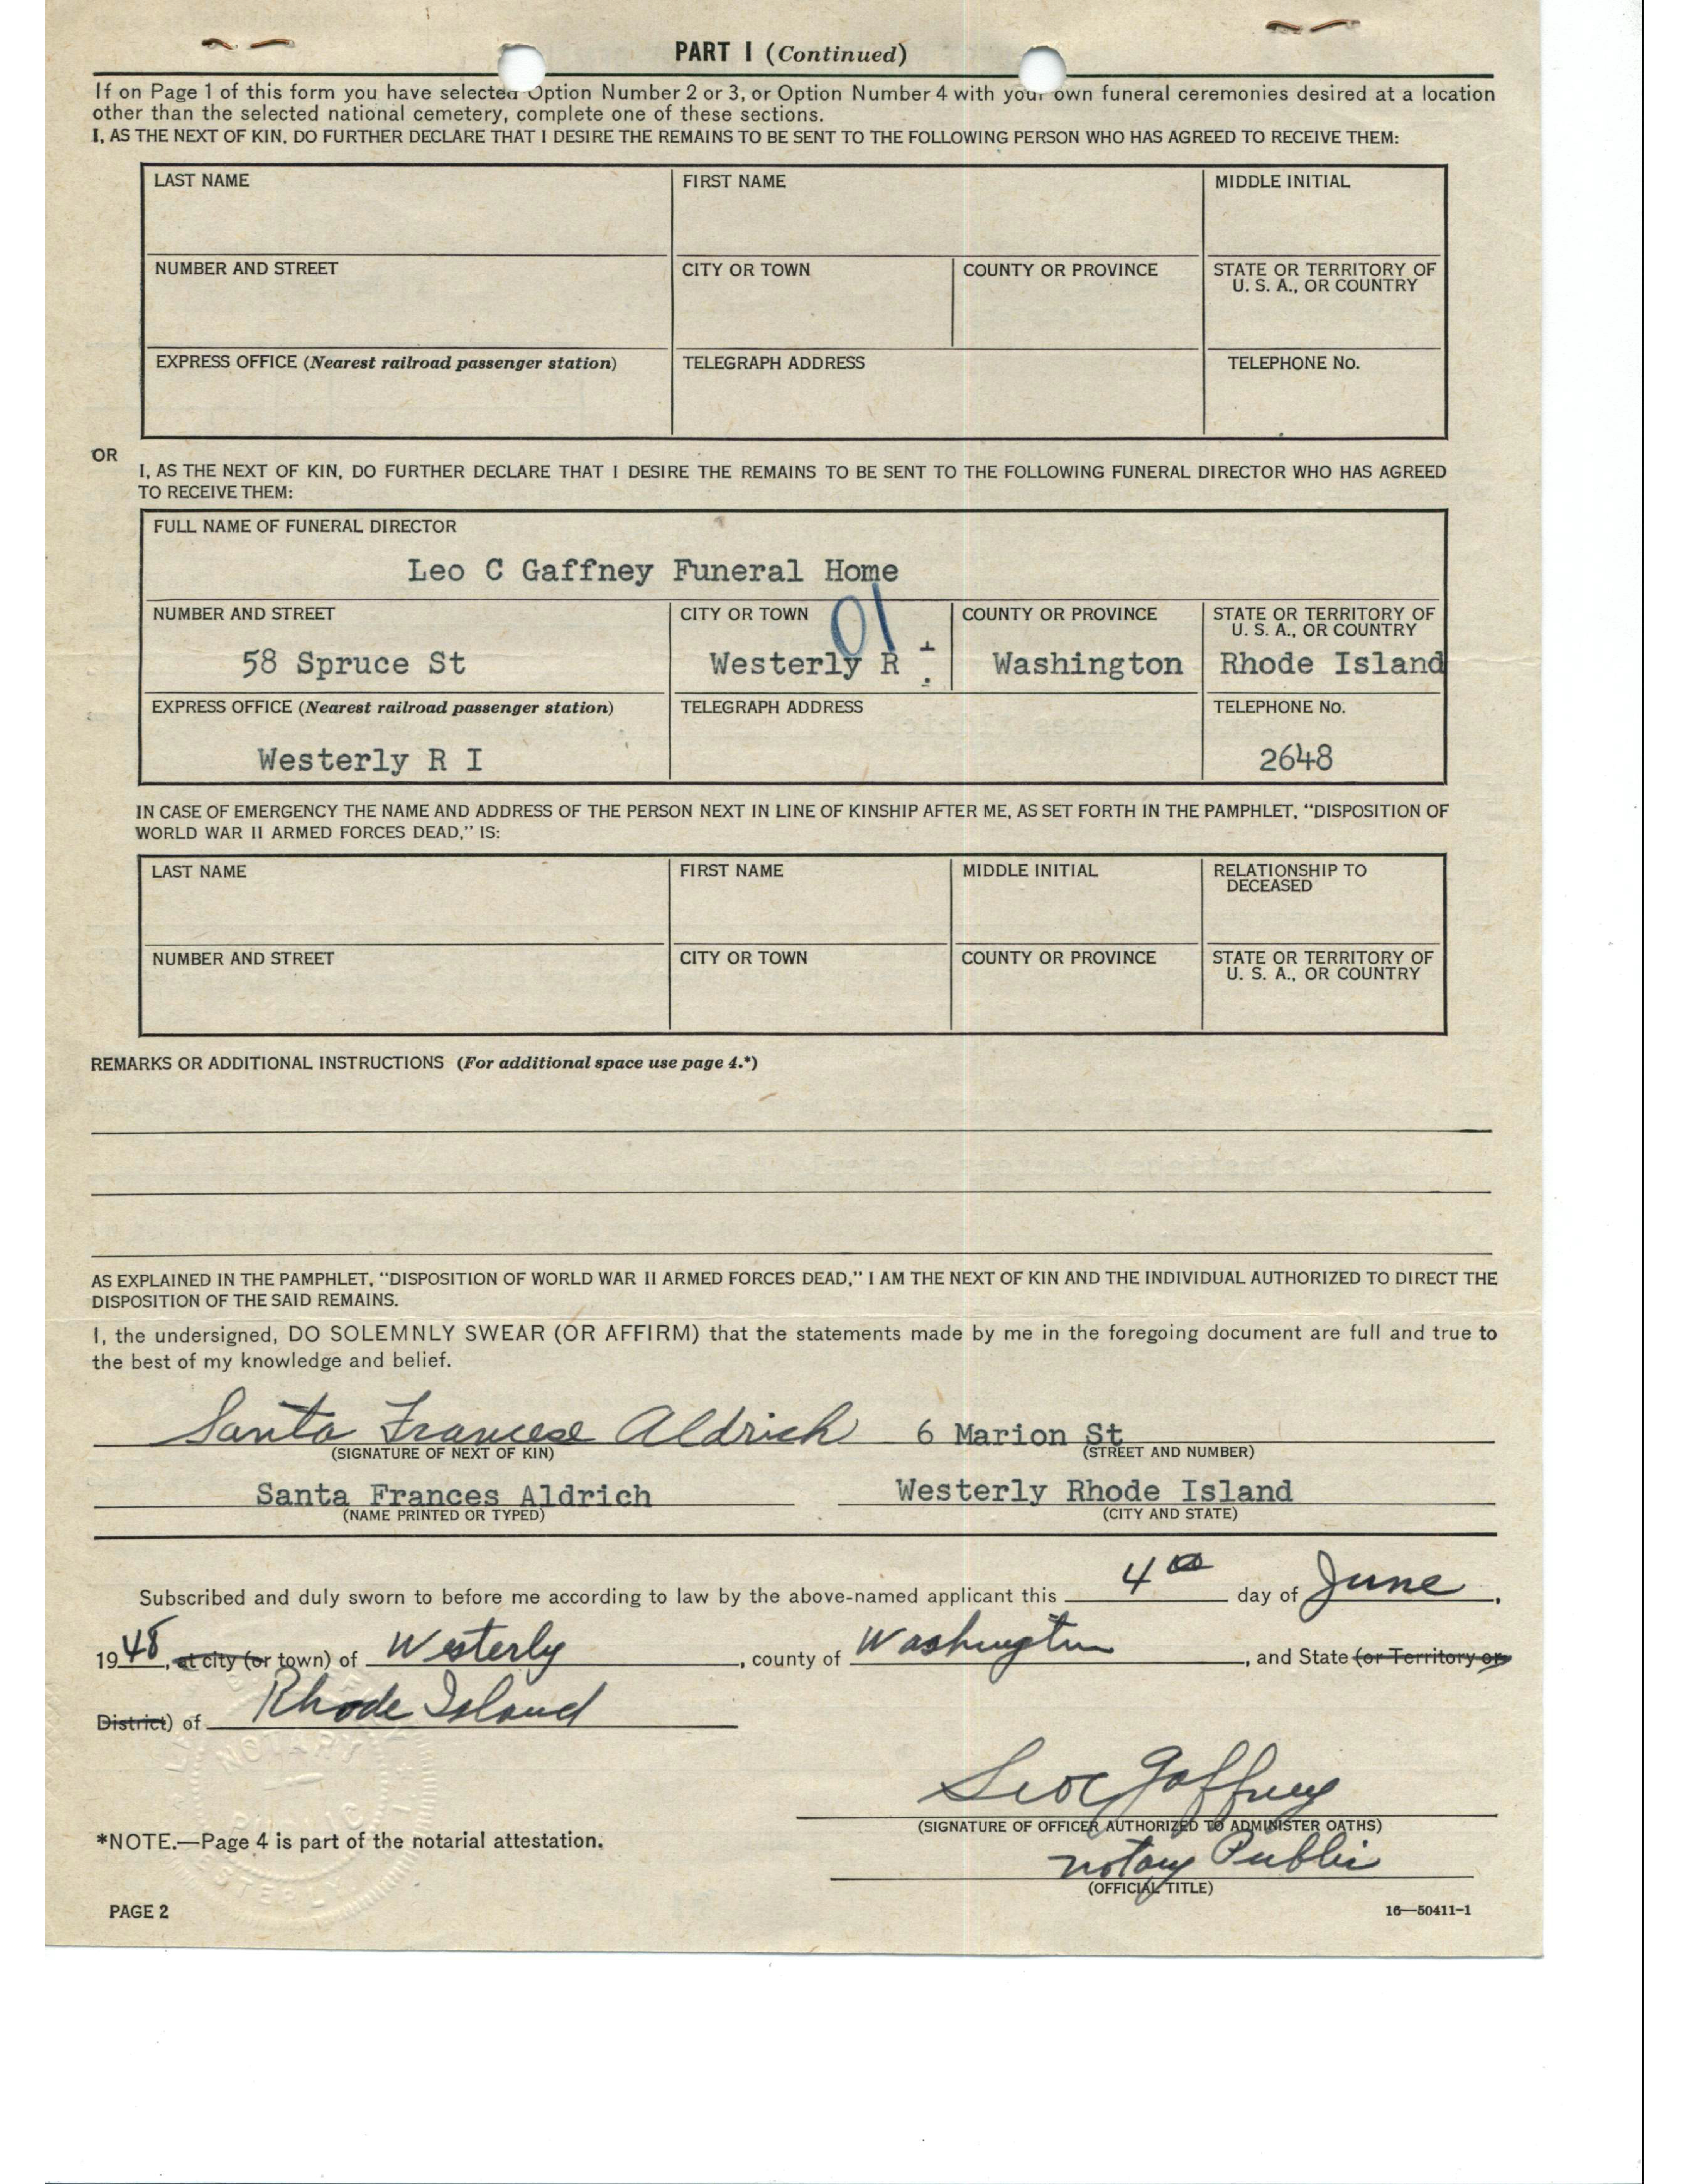 PART I (Continued)
If on Page 1 of this form you have selected Option Number 2 or 3, or Option Number 4 with your own funeral ceremonies desired at a location
other than the selected national cemetery, complete one of these sections.
I, AS THE NEXT OF KIN, DO FURTHER DECLARE THAT I DESIRE THE REMAINS TO BE SENT TO THE FOLLOWING PERSON WHO HAS AGREED TO RECEIVE THEM:
LAST NAME FIRST NAME MIDDLE INITIAL
NUMBER AND STREET CITY OR TOWN COUNTY OR PROVINCE STATE OR TERRITORY OF
U. S. A., OR COUNTRY
EXPRESS OFFICE (Nearest railroad passenger station) TELEGRAPH ADDRESS TELEPHONE No.
OR
I, AS THE NEXT OF KIN, DO FURTHER DECLARE THAT I DESIRE THE REMAINS TO BE SENT TO THE FOLLOWING FUNERAL DIRECTOR WHO HAS AGREED
TO RECEIVE THEM:
FULL NAME OF FUNERAL DIRECTOR
Leo C Gaffney Funeral Home
NUMBER AND STREET CITY OR TOWN 01 COUNTY OR PROVINCE STATE OR TERRITORY OF
U. S. A., OR COUNTRY
58 Spruce St Westerly R Washington Rhode Island
EXPRESS OFFICE (Nearest railroad passenger station) TELEGRAPH ADDRESS TELEPHONE No.
Westerly R I 2648
IN CASE OF EMERGENCY THE NAME AND ADDRESS OF THE PERSON NEXT IN LINE OF KINSHIP AFTER ME, AS SET FORTH IN THE PAMPHLET, "DISPOSITION OF
WORLD WAR II ARMED FORCES DEAD," IS:
LAST NAME FIRST NAME MIDDLE INITIAL RELATIONSHIP TO
DECEASED
NUMBER AND STREET CITY OR TOWN COUNTY OR PROVINCE STATE OR TERRITORY OF
U. S. A., OR COUNTRY
REMARKS OR ADDITIONAL INSTRUCTIONS (For additional space use page 4.*)
AS EXPLAINED IN THE PAMPHLET, "DISPOSITION OF WORLD WAR II ARMED FORCES DEAD," I AM THE NEXT OF KIN AND THE INDIVIDUAL AUTHORIZED TO DIRECT THE
DISPOSITION OF THE SAID REMAINS.
I, the undersigned, DO SOLEMNLY SWEAR (OR AFFIRM) that the statements made by me in the foregoing document are full and true to
the best of my knowledge and belief.
Santa Francese Aldrich 6 Marion St
(SIGNATURE OF NEXT OF KIN) (STREET AND NUMBER)
Santa Frances Aldrich Westerly Rhode Island
(NAME PRINTED OR TYPED) (CITY AND STATE)
Subscribed and duly sworn to before me according to law by the above-named applicant this 4th day of June,
1948, at city (or town) of Westerly, county of Washington, and State (or Territory or
District) of Rhode Island
NOTARY
PUBLIC
WESTERLY
Leo C Gaffney
(SIGNATURE OF OFFICER AUTHORIZED TO ADMINISTER OATHS)
*NOTE.—Page 4 is part of the notarial attestation.
Notary Public
(OFFICIAL TITLE)
PAGE 2 16—50411-1